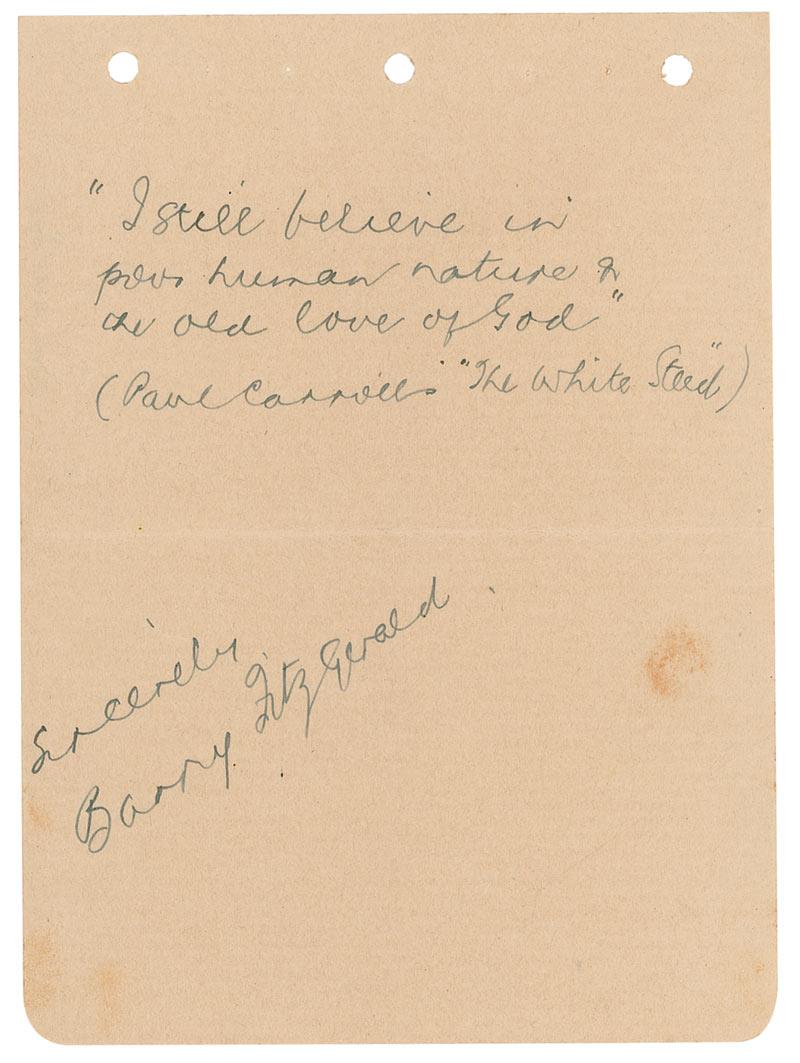 "I still believe in
poor human nature &
the old love of God"
(Paul Carroll's "The White Steed")
Sincerely
Barry FitzGerald.